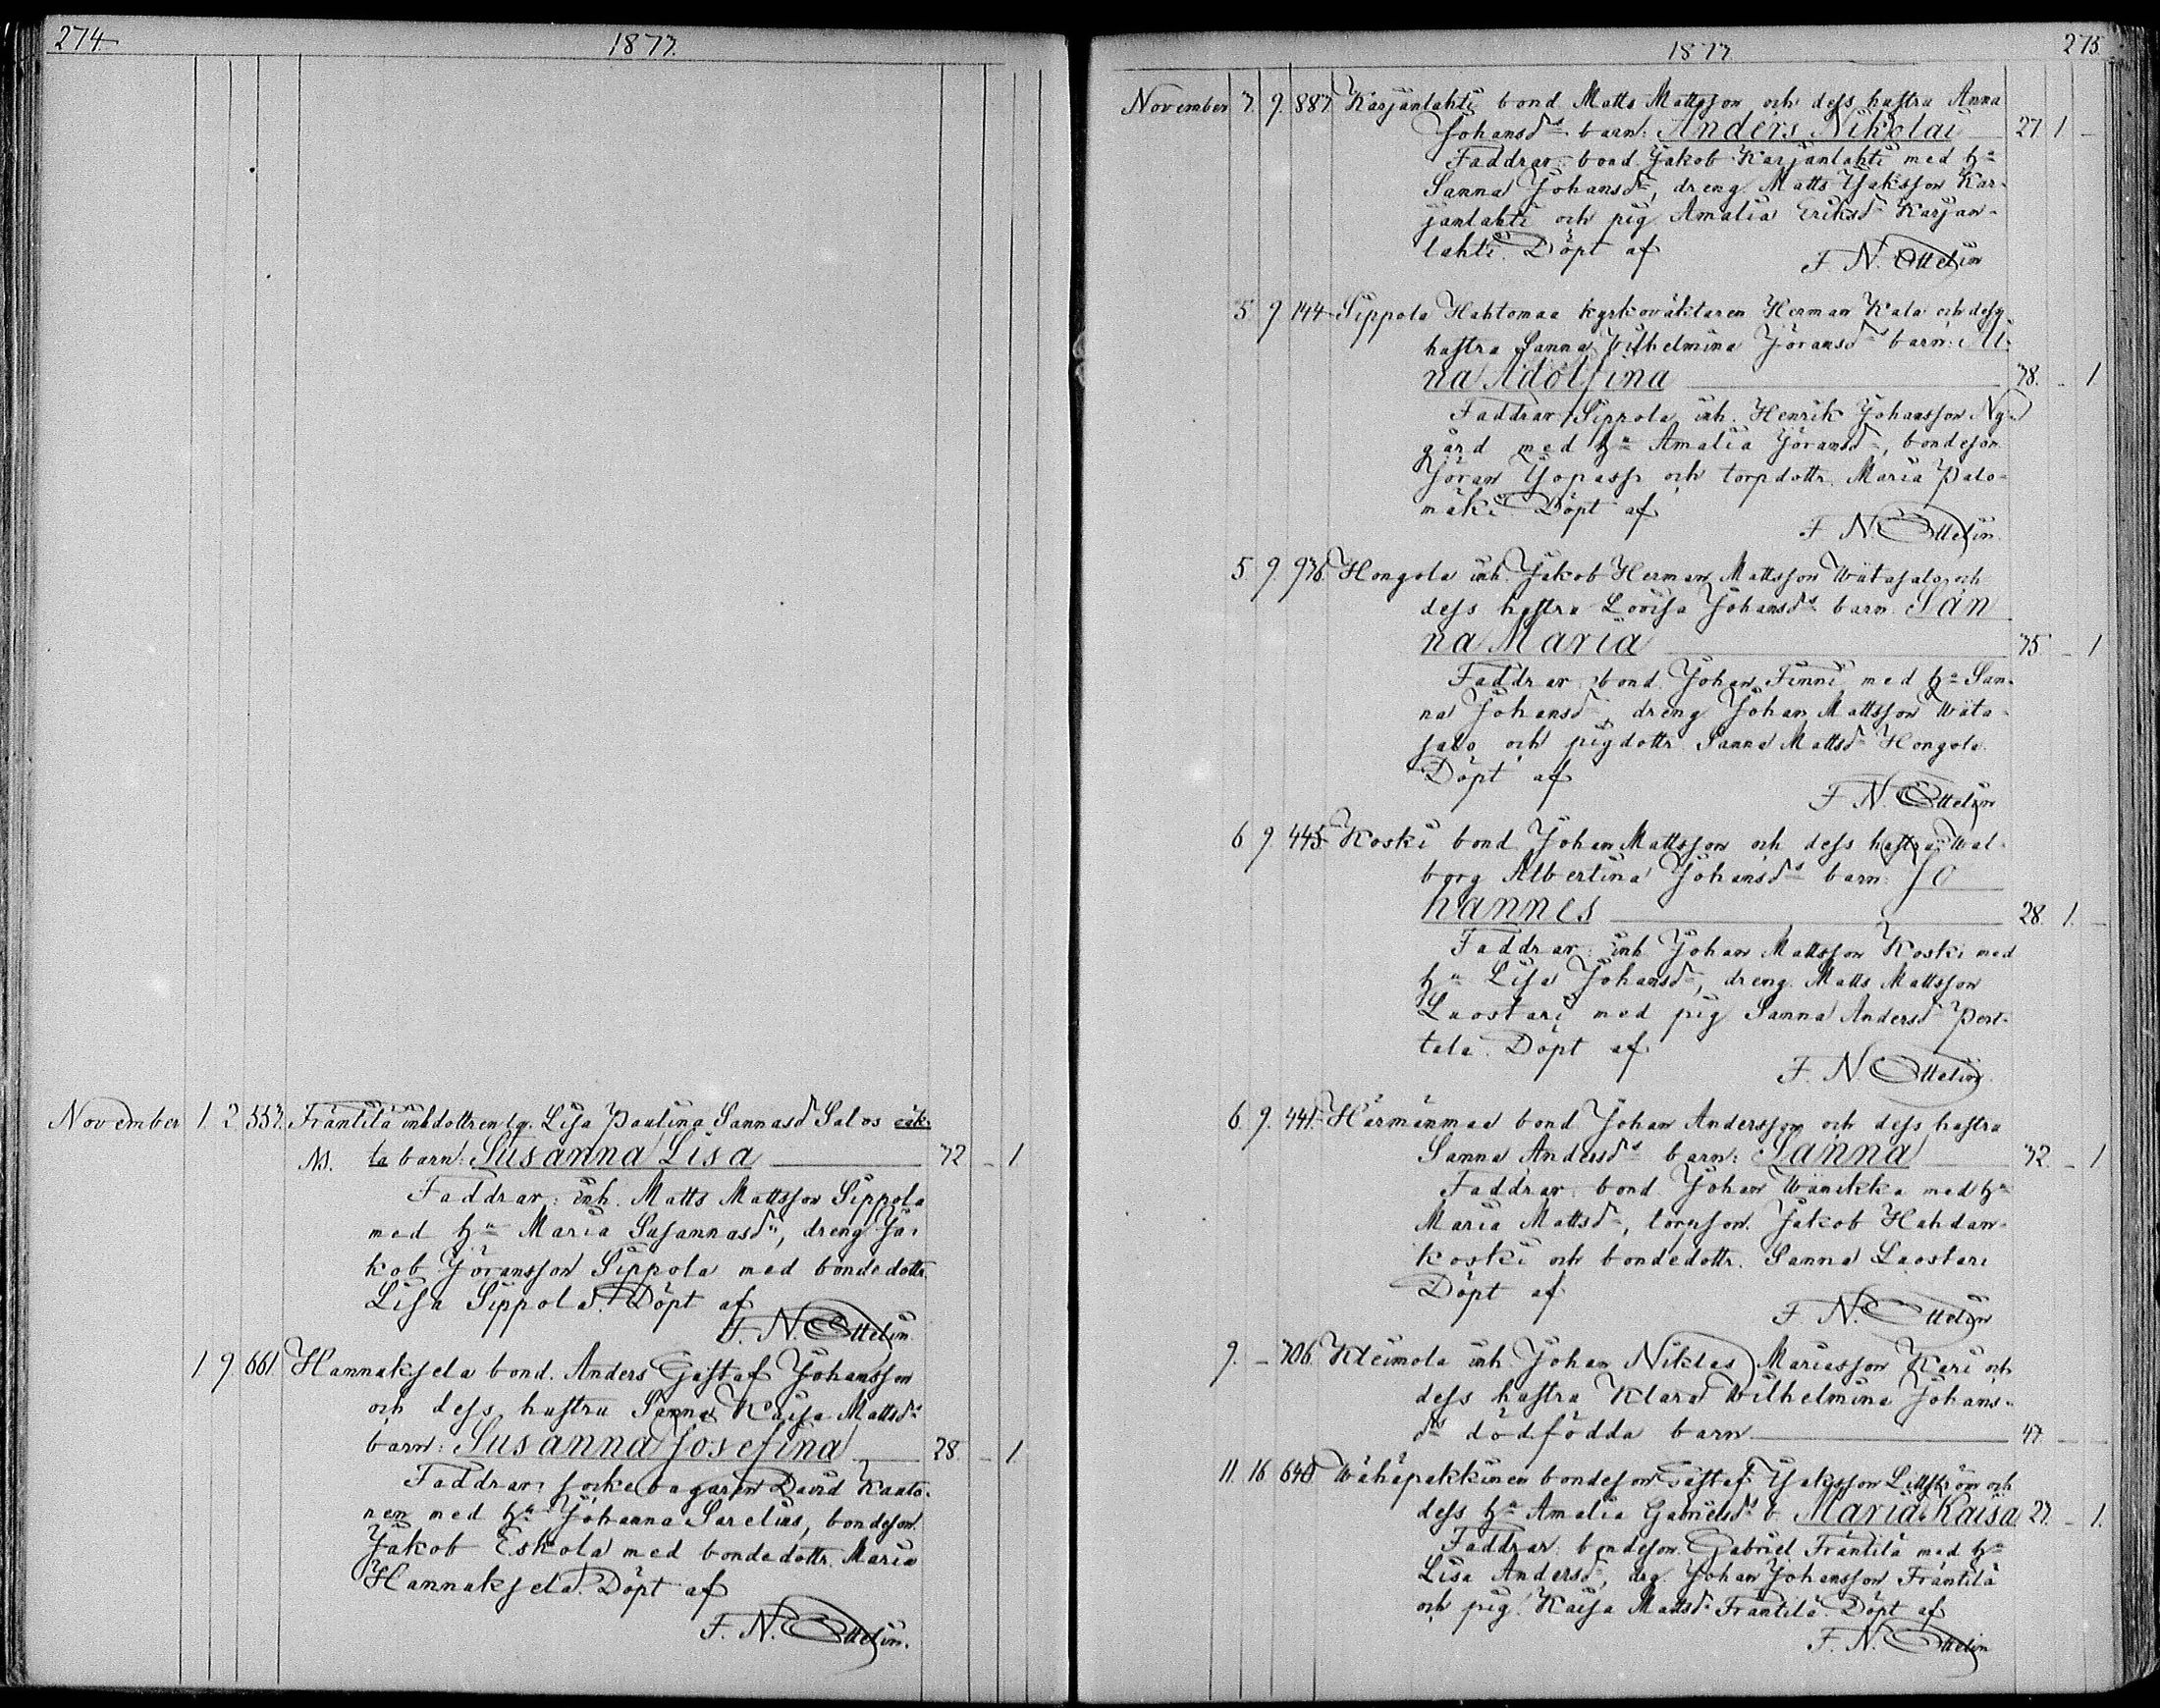 274.
1877.
November 1. 2 557. Fräntilä inhdottren lg. Lisa Paulina Sannasd Salos oäk-
ta barn: Susanna Lisa 32 - 1
Faddrar: inh. Matts Mattsson Sippola
med hu Maria Susannasdr, dreng Ja-
kob Göransson Sippola med bondedottr.
Lisa Sippola. Döpt af
F. N. Ottelin.
1 9. 661. Hannaksela bond. Anders Gustaf Johansson
och dess hustru Sanna Kaisa Mattsds
barn: Susanna Josefina 38. - 1
Faddrar: sockebagaren David Kaato-
nen med hu Johanna Sarelius, bondeson.
Jakob Eskola med bondedottr. Maria
Hannaksela. Döpt af
F. N. Ottelin.
1877
275.
November 3. 9. 887. Karjanlahti bond Matts Mattsson och dess hustru Anna
Johansds barn: Anders Nikolai 27 1 -
Faddrar: bond. Jakob Karjanlahti med hu
Sanna Johansdr, dreng. Matts Jaksson Kar-
janlahti och pig Amalia Eriksdr Karjan-
lahti. Döpt af
F. N. Ottelin
5 9 144 Sippola Hahtomaa kyrkoväktaren Herman Kala och dess
hustru Sanna Wilhelmina Göransds barn: Al-
na Adolfina 38. - 1
Faddrar: Sippola inh. Henrik Johansson Ny-
gård med hu Amalia Göransdr, bondeson
Göran Jopass. och torpdottr. Maria Palo-
mäki. Döpt af
F. N. Ottelin.
5. 9. 938. Hongola inh. Jakob Herman Mattsson Wätasalo och
dess hustru Lovisa Johansds barn San
na Maria 35 - 1
Faddrar: bond. Johan Finni med hu San-
na Johansdr, dreng Johan Mattsson Wäta-
salo och pigdottr. Sanna Mattsdr Hongola.
Döpt af
F. N. Ottelin
6 9. 445 Koski bond Johan Mattsson och dess hustru Wal-
borg Albertina Johansds barn: Jo
hannes 28. 1. -
Faddrar: inh Johan Mattsson Koski med
hu Lisa Johansdr, dreng. Matts Mattsson
Luostari med pig Sanna Andersdr Pert-
tula. Döpt af
F. N. Ottelin.
6. 9. 441. Härmänmaa bond Johan Andersson och dess hustru
Sanna Andersds barn: Sanna 32. - 1
Faddrar: bond Johan Wänikka med hu
Maria Mattsdr, torpson. Jakob Hahdan-
koski och bondedottr. Sanna Luostari
Döpt af
F. N. Ottelin
9. - 706. Kleimola inh. Johan Niklas Mariasson Kari och
dess hustru Klara Wilhelmina Johans-
ds dödfödda barn 47. - -
11. 16 640. Wähäpakkinen bondeson Gustaf Jaksson Littström och
dess hu Amalia Gabrielsds b. Maria Kaisa 27. - 1.
Faddrar: bondeson Gabriel Fräntilä med hu
Lisa Andersdr, drg Johan Johansson Fräntilä
och pig. Kaisa Mattsdr Fräntilä. Döpt af
F. N. Ottelin